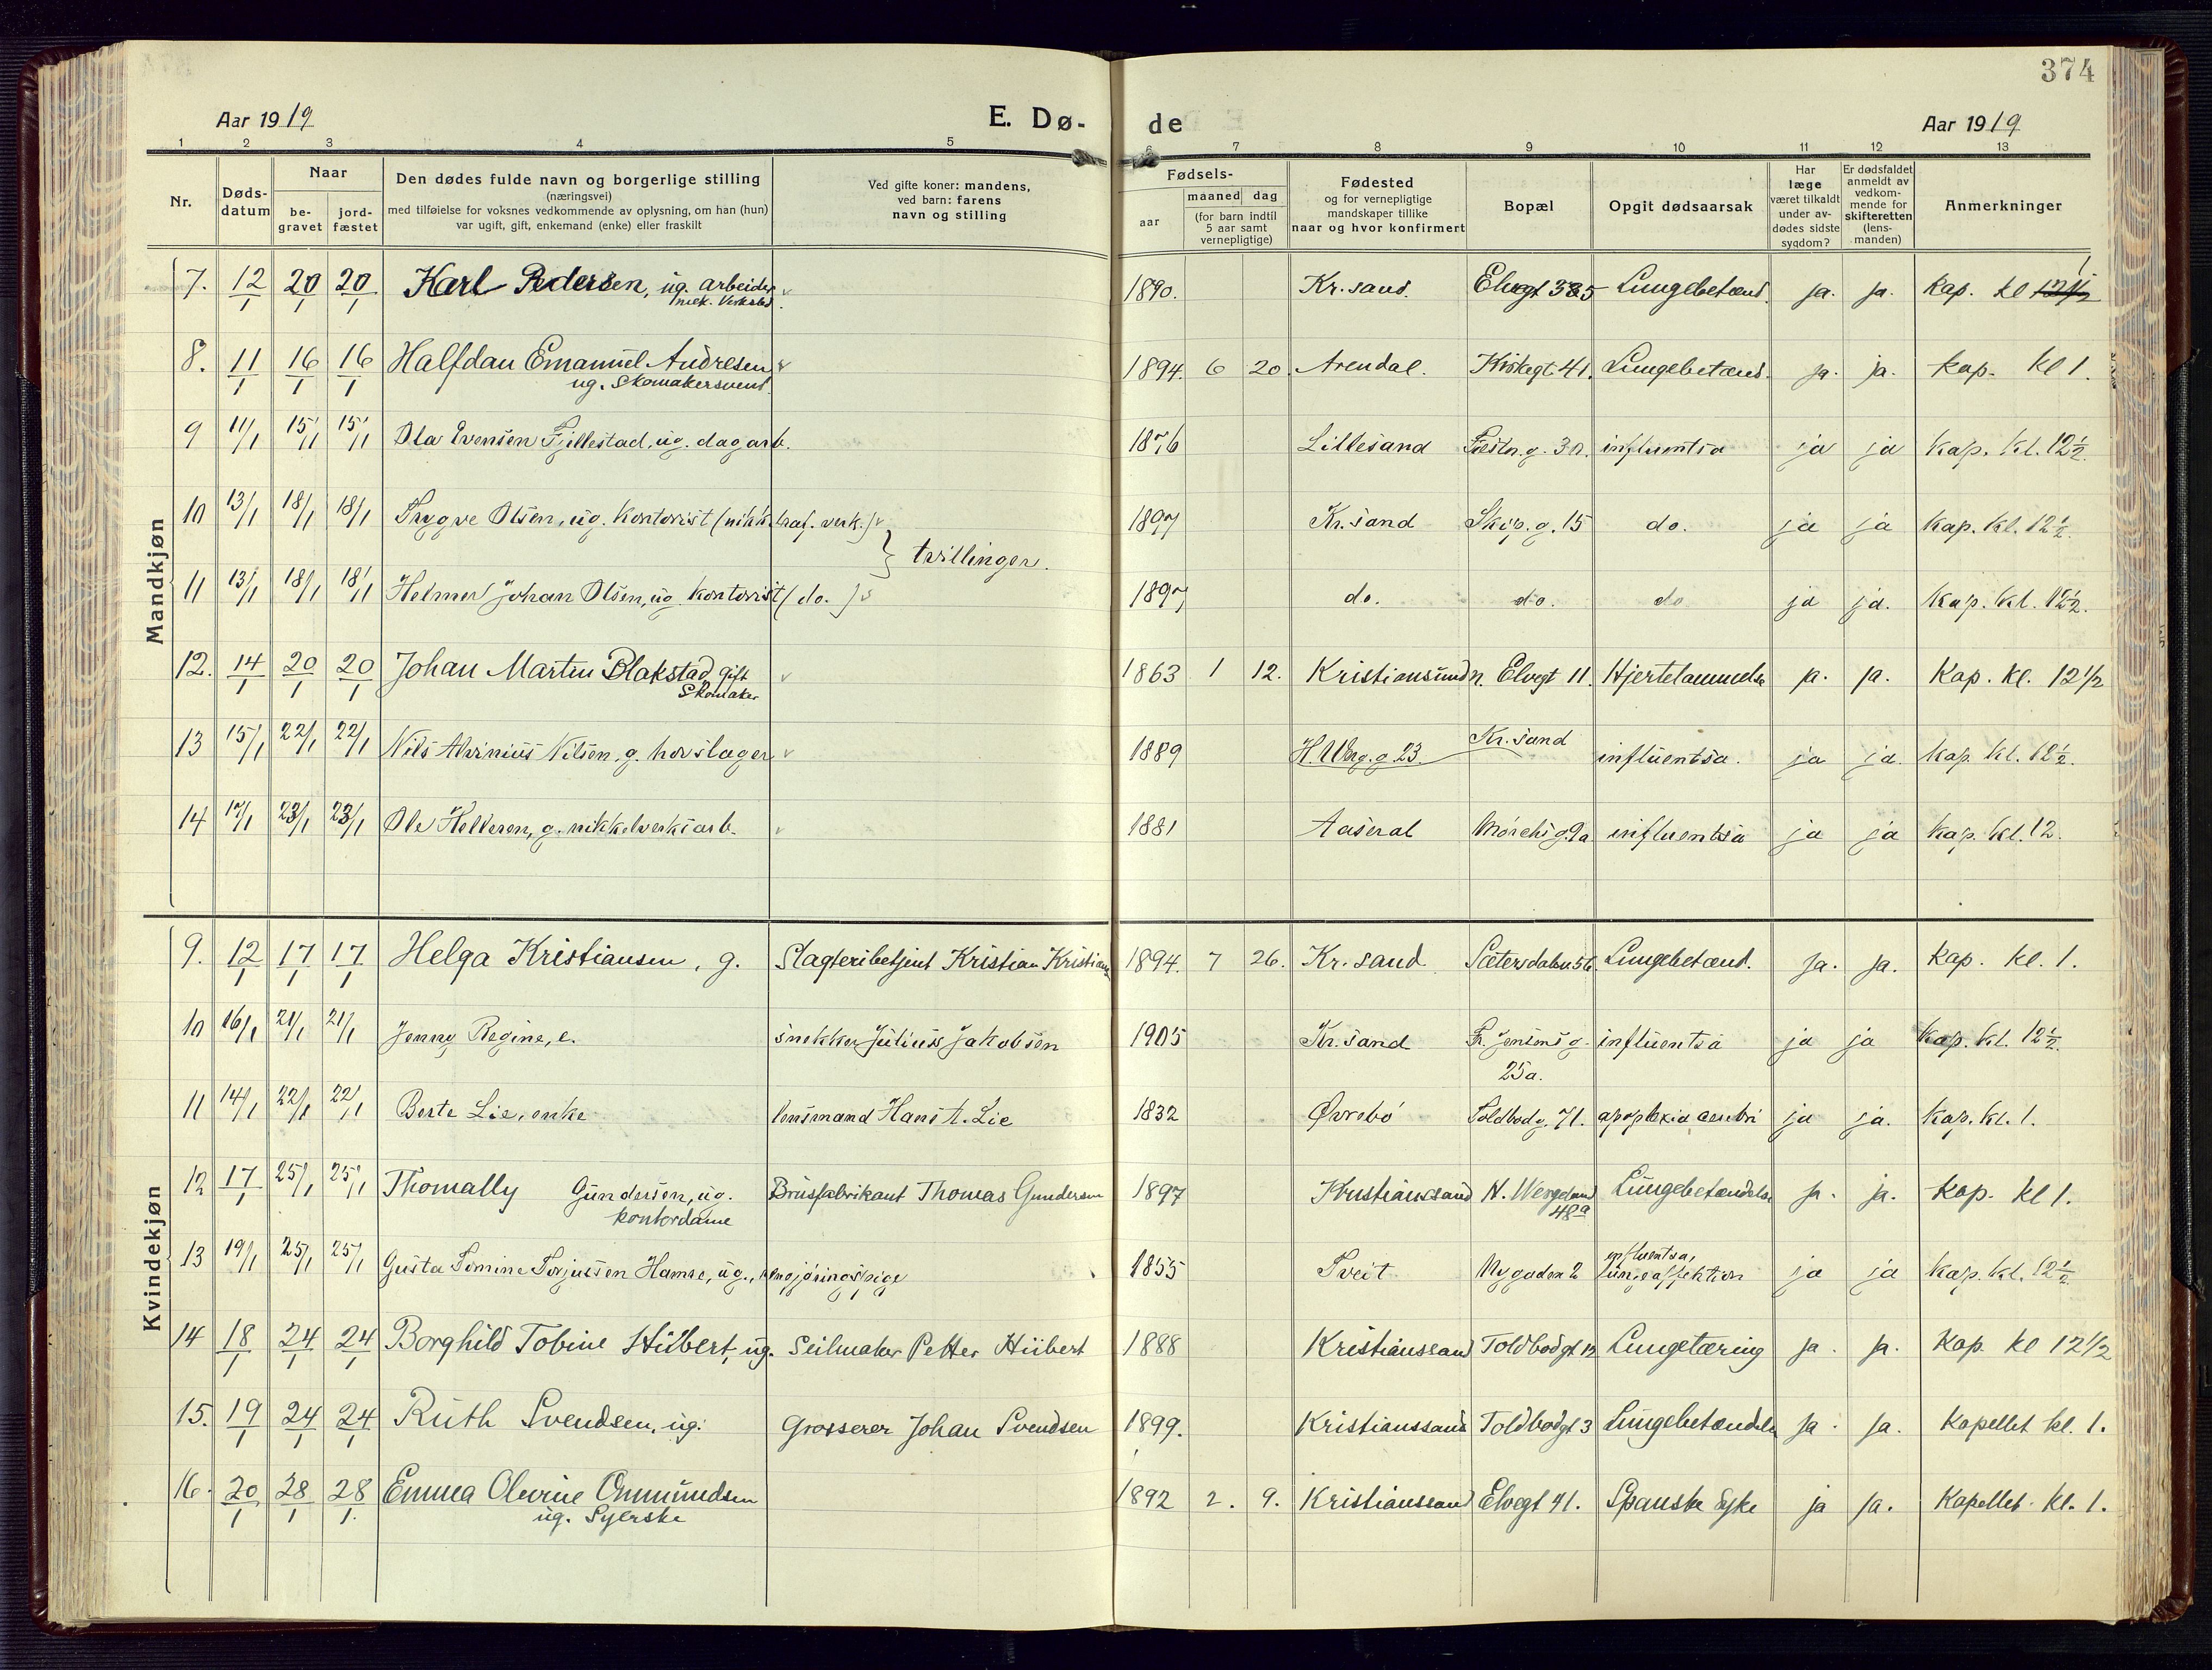 374
Aar 1919
E. Dø-
de
Aar 1919
1 2 3 4 5 6 7 8 9 10 11 12 13
Nr.
Døds-
datum
Naar
be-
gravet
jord-
fæstet
Den dødes fulde navn og borgerlige stilling
(næringsvei)
med tilføielse for voksnes vedkommende av oplysning, om han (hun)
var ugift, gift, enkemand (enke) eller fraskilt
Ved gifte koner: mandens,
ved barn: farens
navn og stilling
Fødsels-
aar
maaned dag
(for barn indtil
5 aar samt
vernepligtige)
Fødested
og for vernepligtige
mandskaper tillike
naar og hvor konfirmert
Bopæl
Opgit dødsaarsak
Har
læge
været tilkaldt
under av-
dødes sidste
sygdom?
Er dødsfaldet
anmeldt av
vedkom-
mende for
skifteretten
(lens-
manden)
Anmerkninger
Mandkjøn
7. 12/1 20/1 20/1 Karl Pedersen, ug. arbeider 1890. Kr.sand. Elvegt Lungebetænd. ja. ja. Kap. kl 1
mek. Veksted.
8. 11/1 16/1 16/1 Halfdan Emanuel Andresen 1894. 6 20. Arendal. Kirkegt. 41. Lungebetænd. ja. ja. Kap. kl 1.
ug. Skomakersvend.
9 11/1 15/1 15/1 Ola Evensen Fjillestad, ug. dagarb. 1876 Lillesand influentsa ja ja Kap. kl. 12½.
10 13/1 18/1 18/1 Trygve Olsen, ug. kontorist (nikk. raf. verk.) 1897 Kr.sand Skip.g. 15 do. ja ja Kap. kl. 12½.
} tvillinger.
11 13/1 18/1 18/1 Helmer Johan Olsen, ug. kontorist (do.) 1897 do. do. do. ja ja. Kap. kl. 12½.
12. 14/1 20/1 20/1 Johan Martin Blakstad gift 1863 1 12. Kristiansund n. Elvegt 11. Hjertelammelse ja. ja. Kap. kl. 12½
Skomaker
13 15/1 22/1 22/1 Nils Alvinius Nilsen, g. hovslager 1889 H. Werg.g 23. Kr.sand influentsa. ja ja Kap. kl. 12½.
14 17/1 23/1 23/1 Ole Helleren, g. nikkelverksarb. 1881 Aaseral Mørchs g. 9a influentsa ja ja Kap. kl. 12.
Kvindekjøn
9. 12/1 17/1 17/1 Helga Kristiansen, g. Slagteribetjent Kristian Kristians 1894. 7 26. Kr.sand Sætersdalen 56 Lungebetænd. ja. ja. Kap. kl. 1.
10 16/1 21/1 21/1 Jenny Regine, e. snekker Julius Jakobsen 1905 Kr.sand Fr. Jensens g. influentsa ja ja Kap. kl. 12½.
25a.
11 14/1 22/1 22/1 Berte Lie, enke lensmand Hans A. Lie 1832 Øvrebø Toldbodg. 71. apoplexia cerebri ja ja. Kap. kl. 1.
12 17/1 25/1 25/1 Thomally Gundersen, ug. Brusfabrikant Thomas Gundersen 1897 Kristianssand H. Wergeland Lungebetændelse ja. ja. Kap. kl 1.
kontordame 48a
13 19/1 25/1 25/1 Gusta Tomine Torjussen Hamre, ug., rengjøringspige 1855 Tveit Nygaden 2 influentsa, ja ja Kap. kl. 12½
lungeaffektion
14 18/1 24/1 24/1 Borghild Tobine Hübert, ug. Seilmaker Petter Hübert 1888 Kristianssand Toldbodgt 12 Lungetæring ja. ja. Kap. kl 12½
15. 19/1 24/1 24/1 Ruth Svendsen, ug. Grosserer Johan Svendsen 1899. Kristianssand Toldbodgt 3 Lungebetændelse ja. ja. Kapellet kl. 1.
16. 20/1 28/1 28/1 Emma Olevine Ommundsen 1892 2. 9. Kristianssand Elvegt 41. Spanske Syke ja ja. Kapellet kl. 1.
ug. Syerske